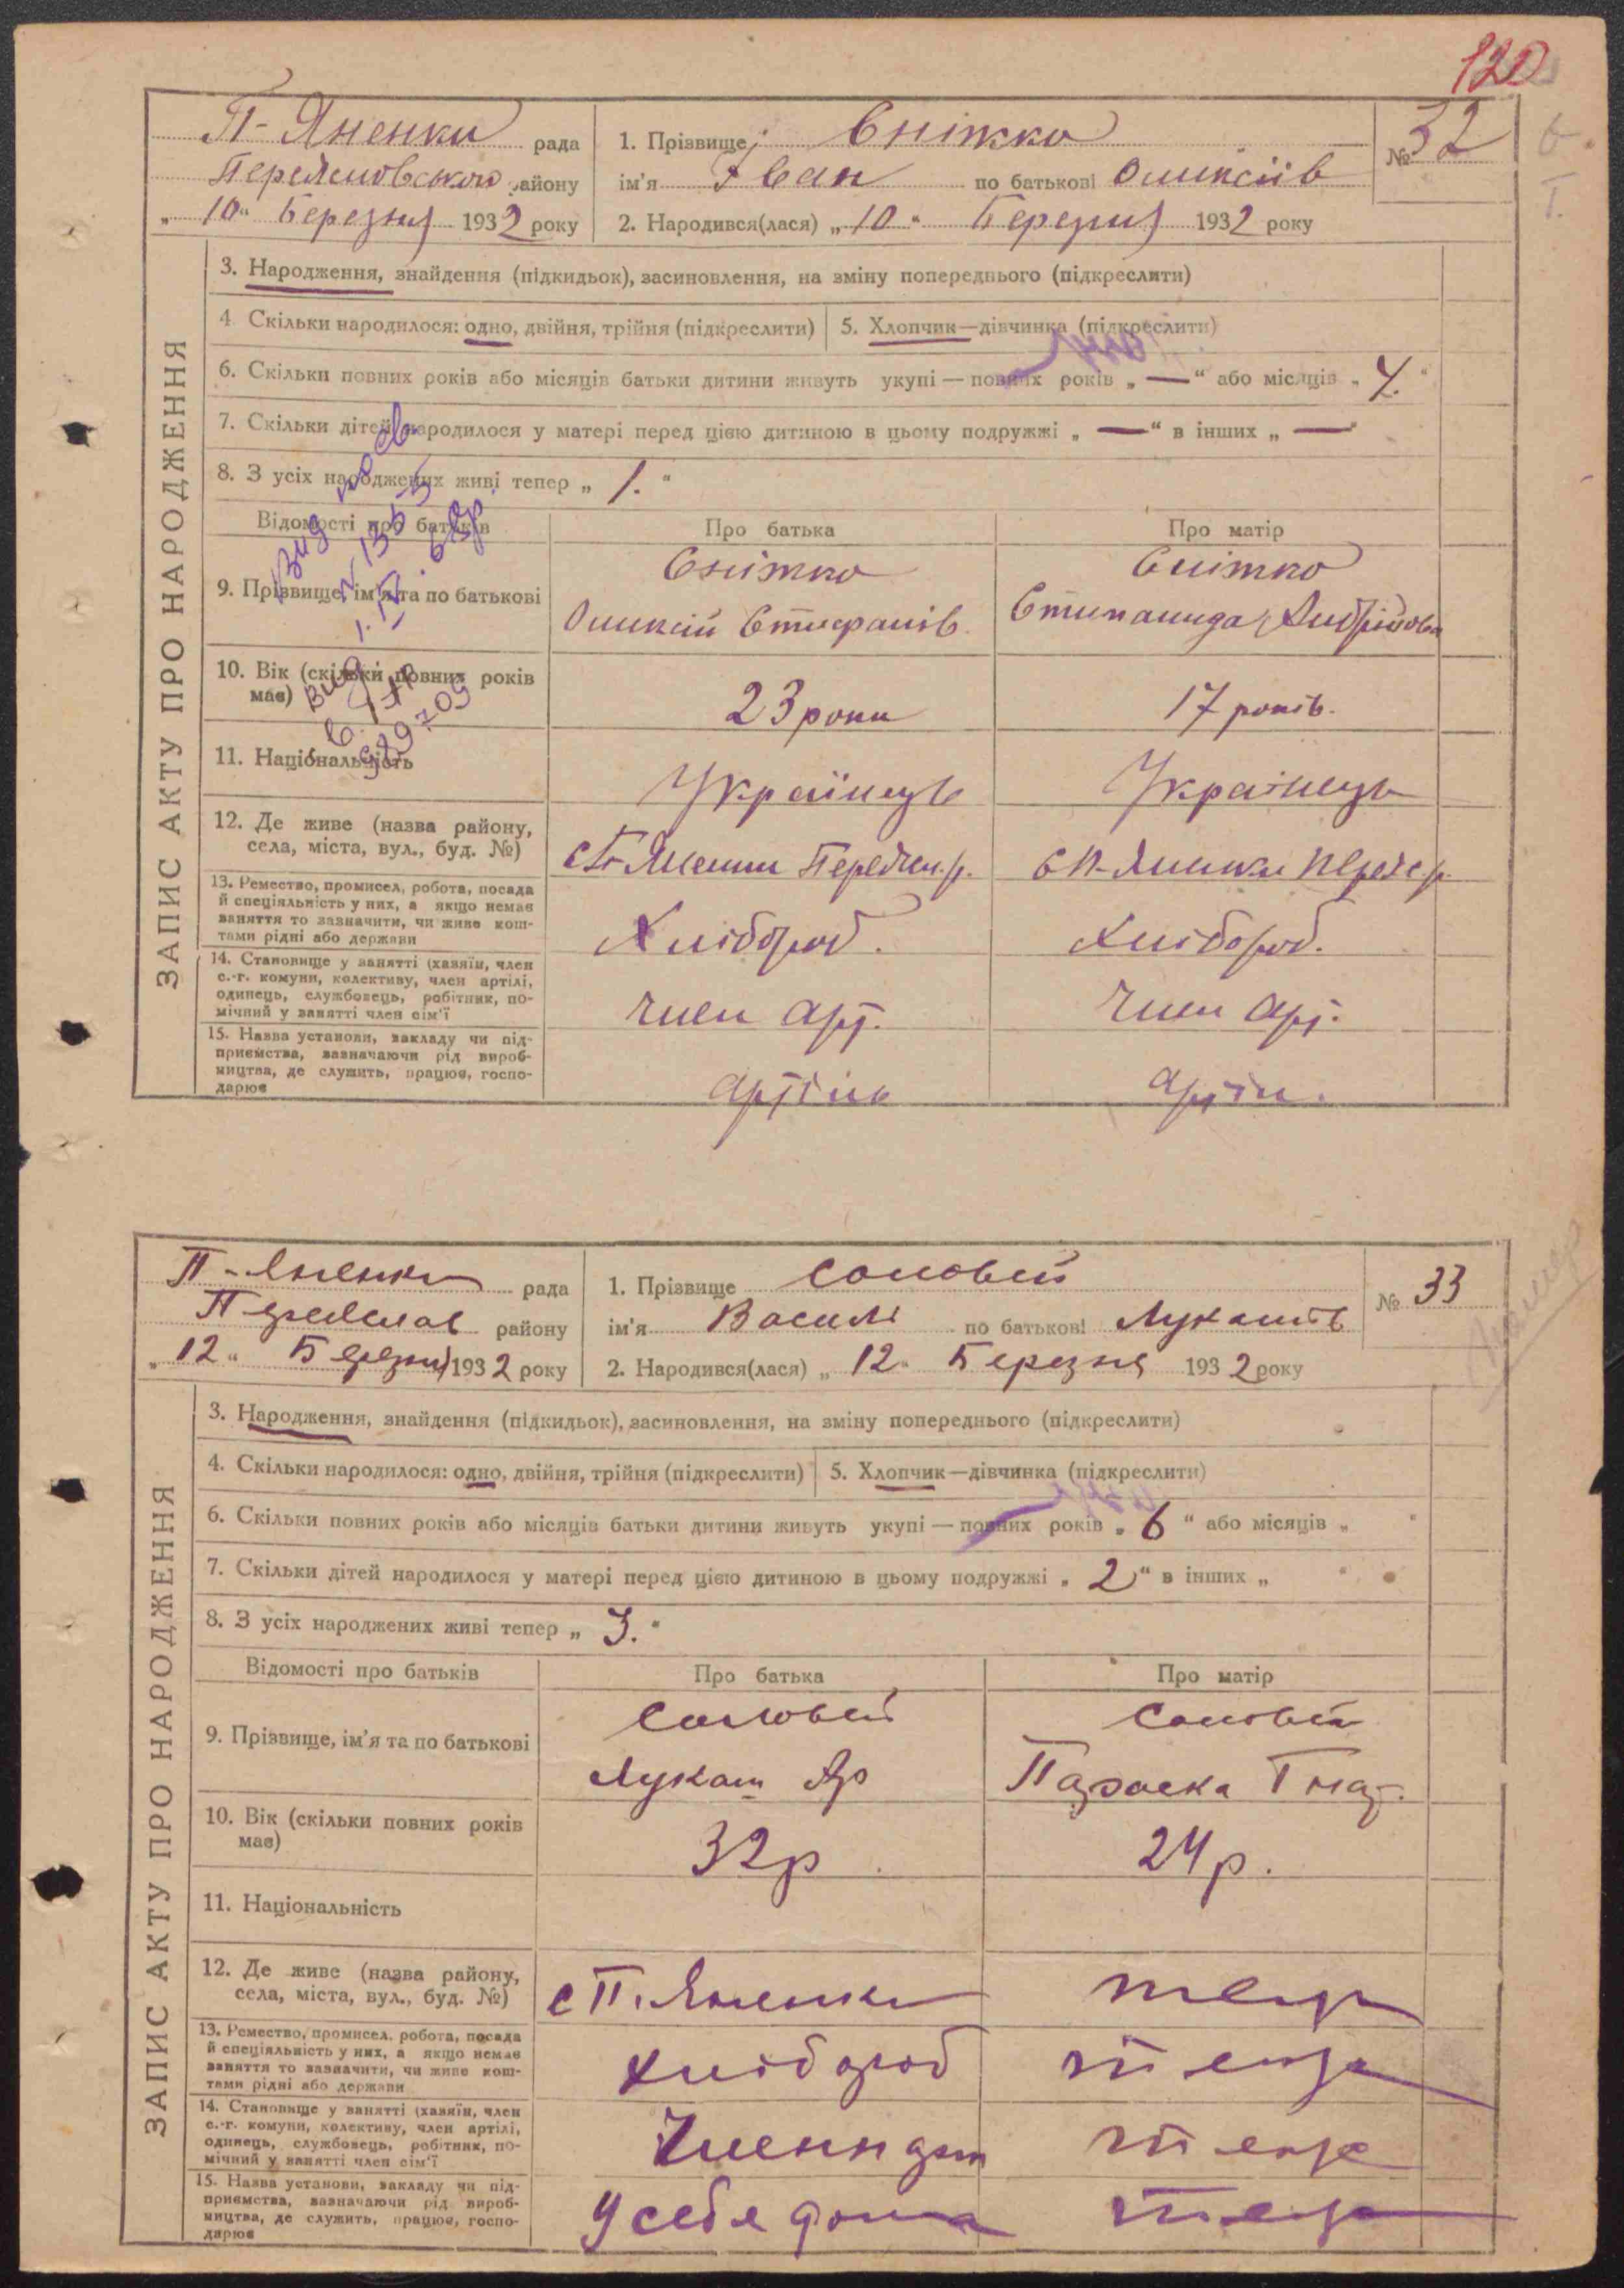 120
П-Яненки рада
Переяславського району
„10“ Березня 1932 року
1. Прізвище Сніжко
ім'я Іван по батькові Олексіїв
№ 32
2. Народився(лася) „10“ Березня 1932 року
ЗАПИС АКТУ ПРО НАРОДЖЕННЯ
3. Народження, знайдення (підкидьок), засиновлення, на зміну попереднього (підкреслити)
4. Скільки народилося: одно, двійня, трійня (підкреслити)
5. Хлопчик—дівчинка (підкреслити)
6. Скільки повних років або місяців батьки дитини живуть укупі — повних років „—“ або місяців „
7. Скільки дітей народилося у матері перед цією дитиною в цьому подружжі „—“ в інших „—“
8. З усіх народжених живі тепер „1.“
Відомості про батьків
Про батька
Про матір
9. Прізвище, ім'я та по батькові
Сніжко
Олексій Стефанів.
Сніжко
Степанида Андрійовна
10. Вік (скільки повних років має)
23 роки
17 років.
11. Національність
Українець
Українець
12. Де живе (назва району, села, міста, вул., буд. №)
13. Ремество, промисел, робота, посада
й спеціяльність у них, а якщо немає
заняття то зазначити, чи живе кош-
тами рідні або держави
Хлібороб.
Хлібороб.
14. Становище у занятті (хазяїн, член
с.-г. комуни, колективу, член артілі,
одинець, службовець, робітник, по-
мічний у занятті член сім'ї
член арт.
член арт.
15. Назва установи, закладу чи під-
приємства, зазначаючи рід вироб-
ництва, де служить, працює, госпо-
дарює
артіль
артіл.
П-Яненки рада
Переяслав району
„12“ Березня 1932 року
1. Прізвище Соловей
ім'я Василь по батькові Лукашів
№ 33
2. Народився(лася) „12“ Березня 1932 року
ЗАПИС АКТУ ПРО НАРОДЖЕННЯ
3. Народження, знайдення (підкидьок), засиновлення, на зміну попереднього (підкреслити)
4. Скільки народилося: одно, двійня, трійня (підкреслити)
5. Хлопчик—дівчинка (підкреслити)
6. Скільки повних років або місяців батьки дитини живуть укупі — повних років „6“ або місяців „ “
7. Скільки дітей народилося у матері перед цією дитиною в цьому подружжі „2“ в інших „ “
8. З усіх народжених живі тепер „3.“
Відомості про батьків
Про батька
Про матір
9. Прізвище, ім'я та по батькові
Соловей
Лукаш
Соловей
Параска Гнат.
10. Вік (скільки повних років має)
32 р
24 р.
11. Національність
12. Де живе (назва району, села, міста, вул., буд. №)
с П. Яненки
13. Ремество, промисел, робота, посада
й спеціяльність у них, а якщо немає
заняття то зазначити, чи живе кош-
тами рідні або держави
хлібороб
14. Становище у занятті (хазяїн, член
с.-г. комуни, колективу, член артілі,
одинець, службовець, робітник, по-
мічний у занятті член сім'ї
15. Назва установи, закладу чи під-
приємства, зазначаючи рід вироб-
ництва, де служить, працює, госпо-
дарює
У себе дома